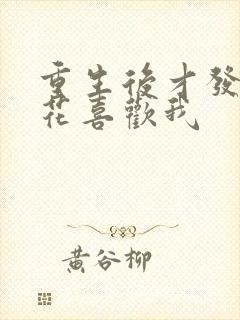 重生後才發
花喜歡我
黃谷柳